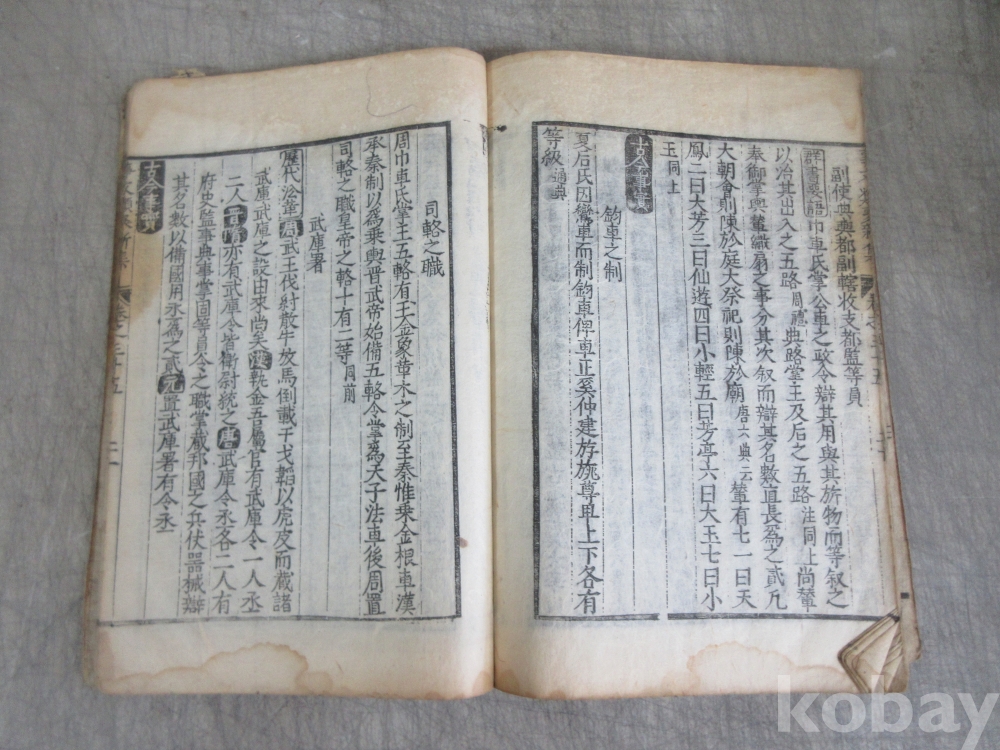 副使典輿都副轄收支都監等員
群書要語巾車氏掌公車之政令辯其用與其旂物而等敘之
以治其出入之五路周禮典路掌主及后之五路注同上尚輦
奉御掌輿輦繖扇之事分其次叙而辯其名數直長爲之貳凡
大朝會則陳於庭大祭祀則陳於廟唐六典云輦有七一曰大
鳳二曰大芳三曰仙遊四曰小輕五曰芳亭六曰大玉七曰小
玉同上
古今事實
鈎車之制
夏后氏因鸞車而制鈎車俾車正奚仲建斿旐尊卑上下各有
等級通典
司輅之職
周巾車氏掌王五輅有玉金象革木之制至秦惟乗金根車漢
承秦制以爲乗輿晉武帝始備五輅令掌爲天子法車後周置
司輅之職皇帝之輅十有二等同前
武庫署
歷代沿革周武王伐紂散牛放馬倒載干戈韜以虎皮而藏諸
武庫武庫之設由來尚矣漢執金吾屬官有武庫令一人丞
二人晉宋亦有武庫令皆衛尉統之唐武庫令丞各二人有
府史監事典事掌固等員令之職掌藏邦國之兵仗器械辯
其名數以備國用丞爲之貳元置武庫署有令丞
古今事實
kobay